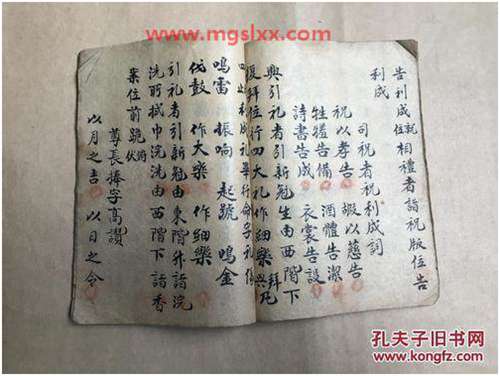 www.mgslxx.com
告利成就位相禮者詣祝版位告
利成
司祝者祝利成詞
祝以孝告 嘏以慈告
牲牷告備 酒體告潔
詩書告成 衣裳告設
興引礼者引新冠生由西階下
復拜位行四大礼作細樂興拜凡
四止利成礼畢行命字礼
鳴雷 振响 起號 鳴金
伐鼓 作大樂 作細樂
引礼者引新冠由東階升詣浣
洗所拭巾浣洗由西階下詣香
案位前跪俯伏
尊長捧字高讃
以月之吉 以日之令
孔夫子旧书网
www.kongfz.com